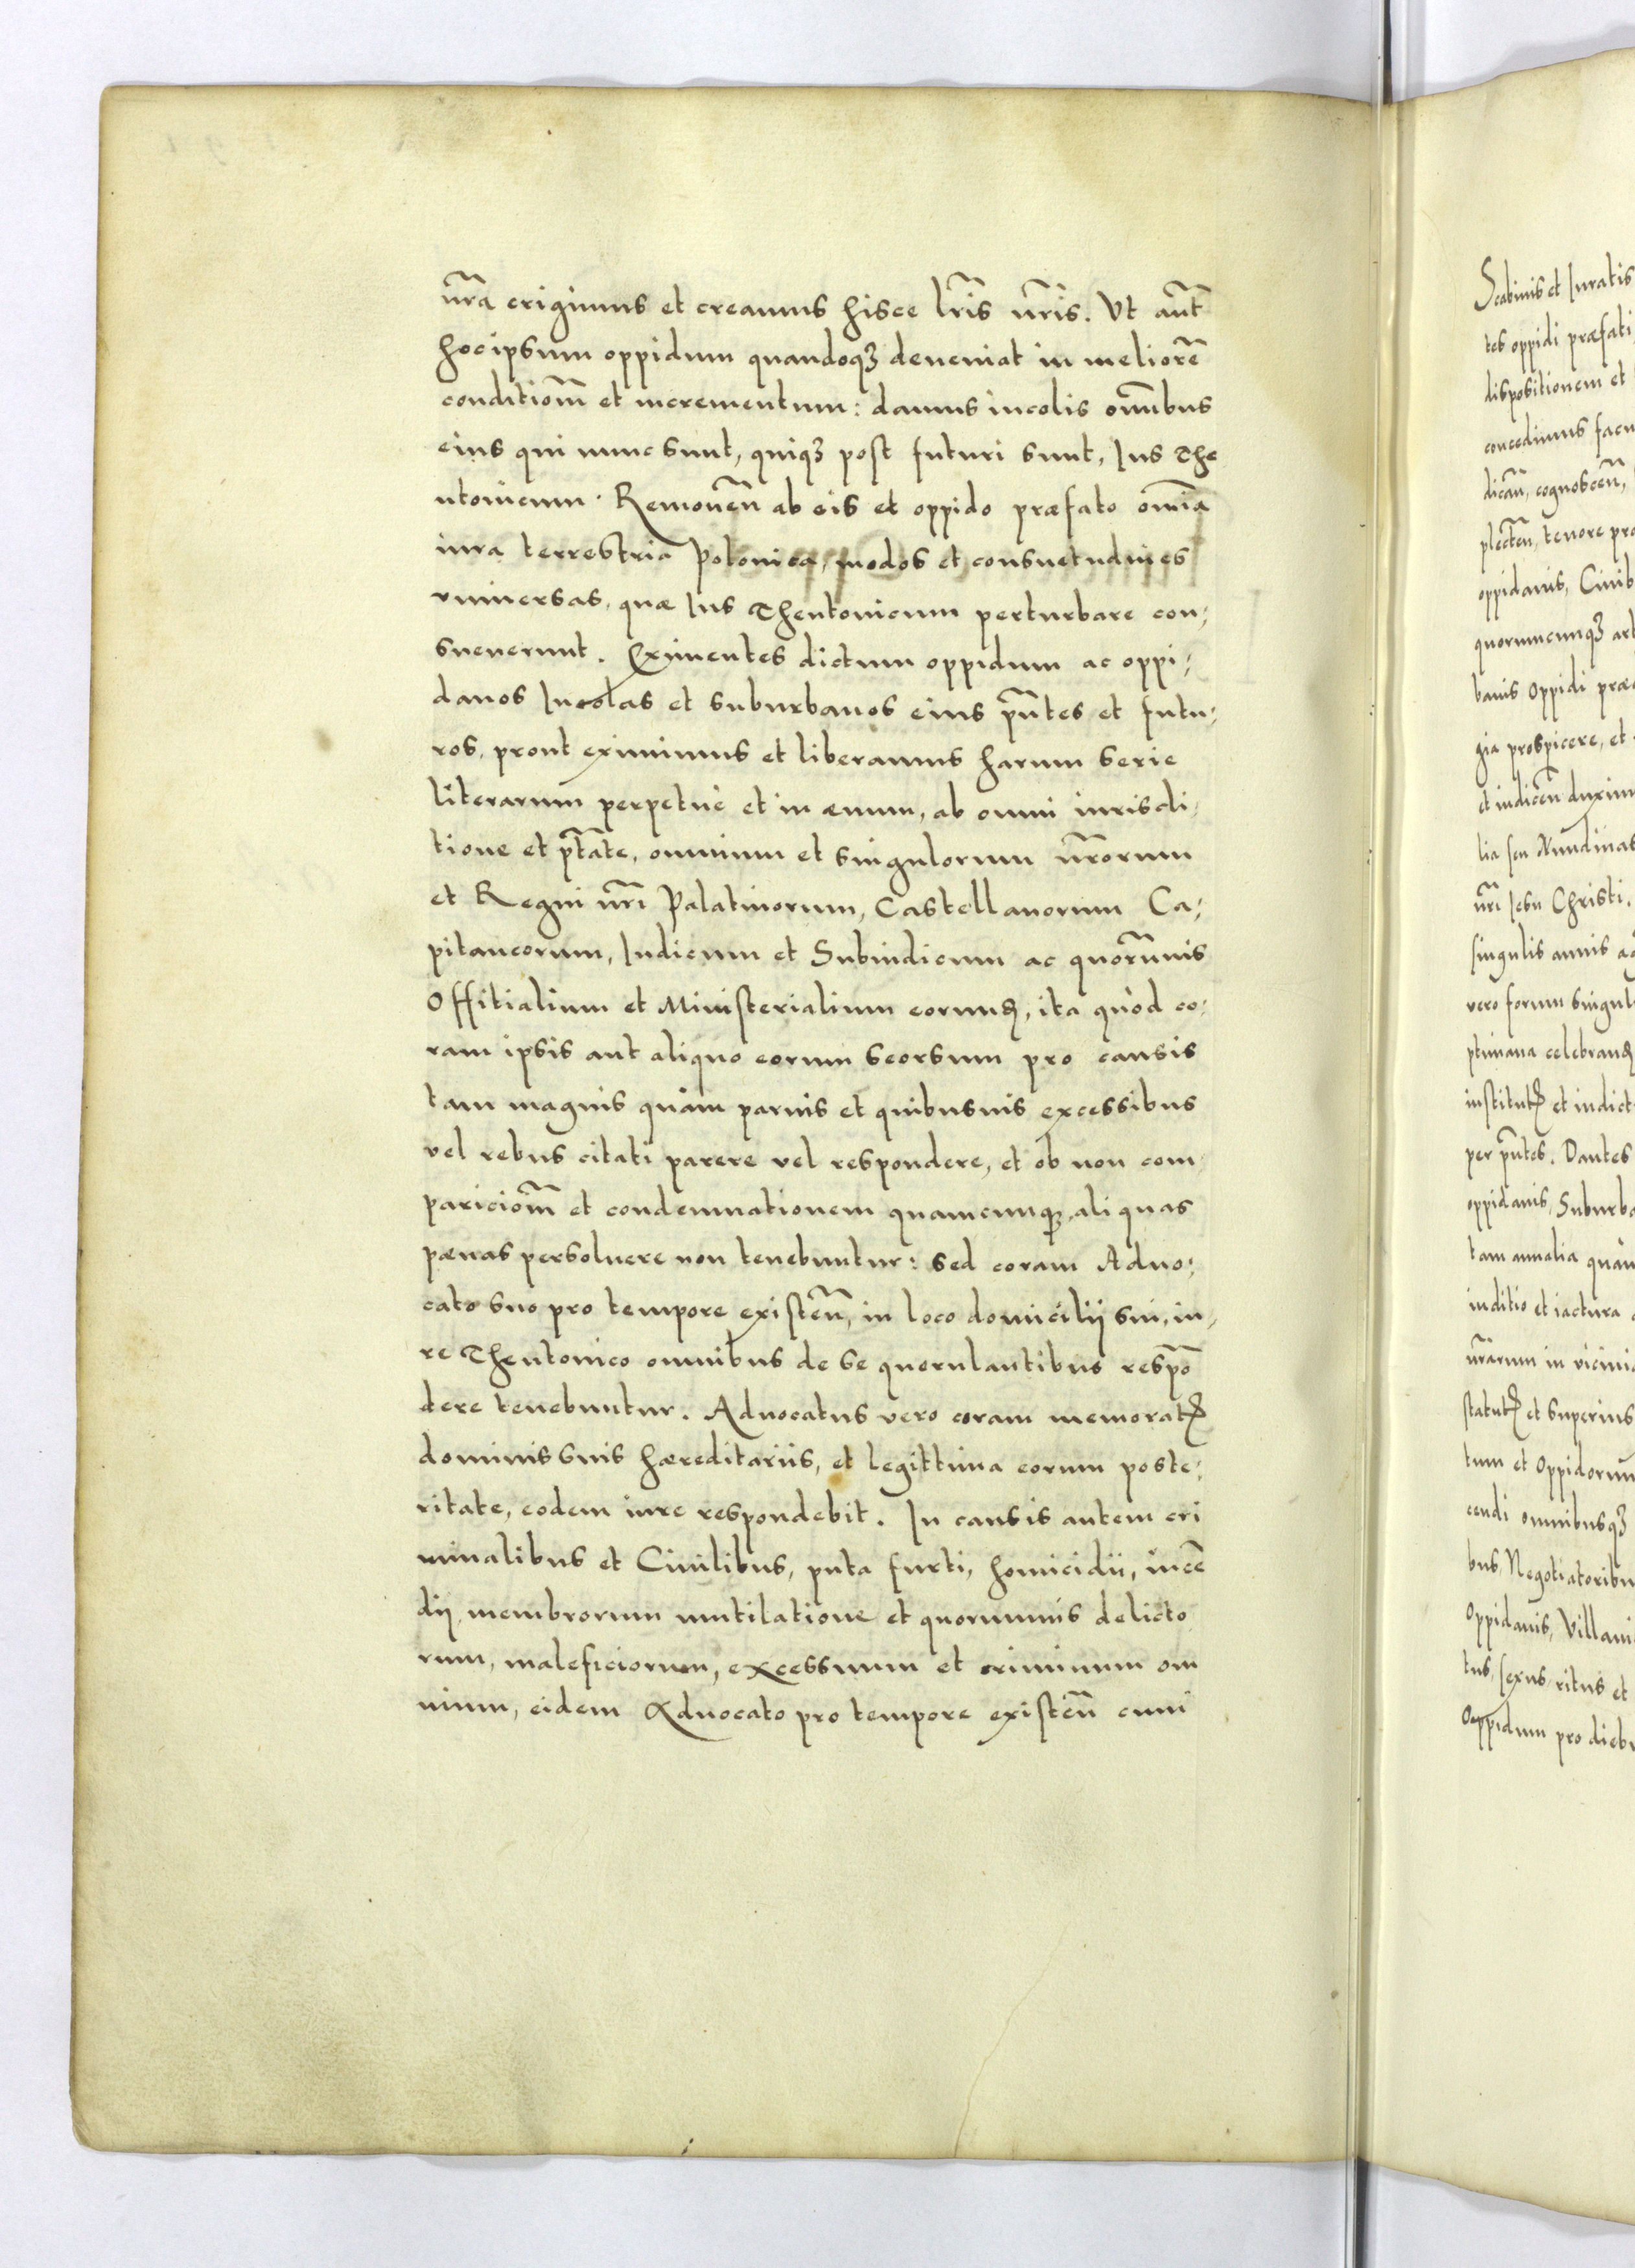 nr̃a erigimus et creamus hisce lr̃is nr̃is. Vt aut̃
hocipsum oppidum quandoqꝫ deueniat in meliorẽ
conditiom̃ et incrementum: damus incolis om̃ibus
eius qui nunc sunt, quiqꝫ post futuri sunt, Ius The
utonicum. Remoueñ ab eis et oppido præfato om̃ia
iura terrestria Polonica, modos et consuetudines
vniuersas, quæ Ius Theutonicum perturbare con,
sueuerunt. Eximentes dictum oppidum ac oppi,
danos Incolas et suburbanos eius pñtes et futu,
ros, prout eximimus et liberamus harum serie
literarum perpetuè et in æuum, ab omni iurisdi
tione et ptãte, omnium et singulorum nr̃orum
et Regni nr̃i Palatinorum, Castellanorum Ca,
pitaneorum, Iudicum et Subiudicum ac quorum̃uis
Offitialium et Ministerialium eorumd, ita quòd co,
ram ipsis aut aliquo eorum seorsum pro causis
tam magnis quàm paruis et quibusuis excessibus
vel rebus citati parere vel respondere, et ob non com
pariciom̃ et condemnationem quamcunqꝫ, aliquas
pænas persoluere non tenebuntur: sed coram Aduo,
cato suo pro tempore existeñ, in loco domicilij sui, iu,
re Theutonico omnibus de se querulantibus respõ
dere tenebuntur. Aduocatus vero coram memoratꝭ
dominis suis hæreditariis, et legittima eorum poste,
ritate, eodem iure respondebit. In causis autem cri
minalibus et Ciuilibus, puta furti, homicidii, incẽ
dij, membrorum mutilatione et quorumuis delicto
rum, maleficiorum, excessuum et criminum om
nium, eidem Aduocato pro tempore existeñ cum
Scabinis et Iuratis
tes oppidi præfati
dispositionem et
concedimus facu
dicañ, cognosceñ,
plecteñ, tenore præ
oppidanis, Ciuib
quorumcunqꝫ art
banis Oppidi præ
gia prospicere, et
et indiceñ duxim
lia seu Nundinas
nr̃i Iesu Christi.
singulis annis a
vero forum singul
ptimana celebrand
institutꝭ et indict
per pñtes. Dantes
oppidanis, Suburba
tam annalia quàm
iuditio et iactura
nr̃arum in vicinia
statutꝭ et superius
tum et Oppidorum
cendi omnibusqꝫ
bus, Negotiatoribu
Oppidanis, Villani
tus, sexus, ritus et
Oppidum pro diebu